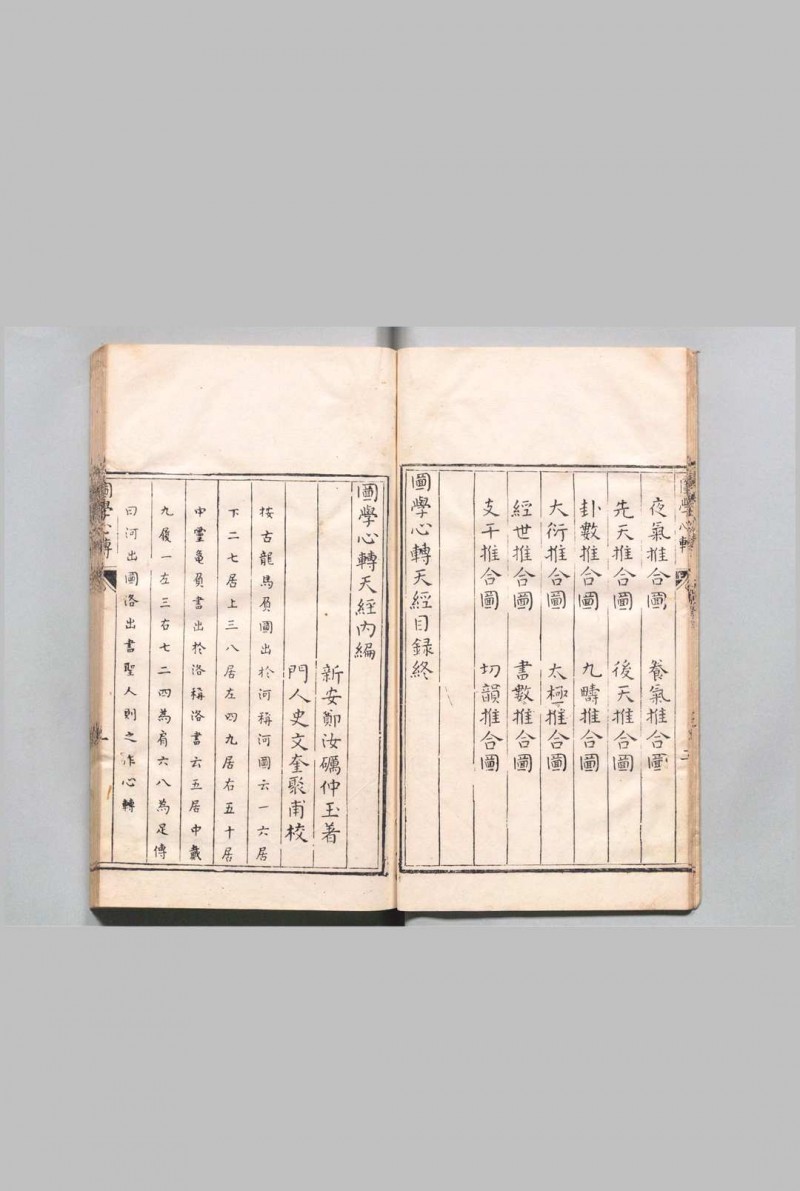 夜氣推合圖　養氣推合圖
先天推合圖　後天推合圖
卦數推合圖　九疇推合圖
大衍推合圖　太極推合圖
經世推合圖　書數推合圖
支干推合圖　切韻推合圖
圖學心轉天經目録終
圖學心轉天經內編
新安鄭汝礪仲玉著
門人史文奎聚甫校
按古龍馬負圖出於河稱河圖云一六居
下二七居上三八居左四九居右五十居
中靈龜負書出於洛稱洛書云五居中戴
九履一左三右七二四為肩六八為足傳
曰河出圖洛出書聖人則之作心轉
圖學心轉